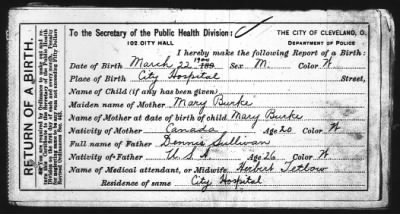 To the Secretary of the Public Health Division: THE CITY OF CLEVELAND, O.
102 CITY HALL DEPARTMENT OF POLICE
I hereby make the following Report of a Birth:
Date of Birth March 22 1900 Sex M. Color W
Place of Birth City Hospital Street,
Name of Child (if any has been given)
Maiden name of Mother Mary Burke
Name of Mother at date of birth of child Mary Burke
Nativity of Mother Canada Age 20 Color W
Full name of Father Dennis Sullivan
Nativity of Father U.S.A Age 26 Color W
Name of Medical attendant, or Midwife Herbert Tetlow
Residence of same City Hospital
RETURN OF A BIRTH.